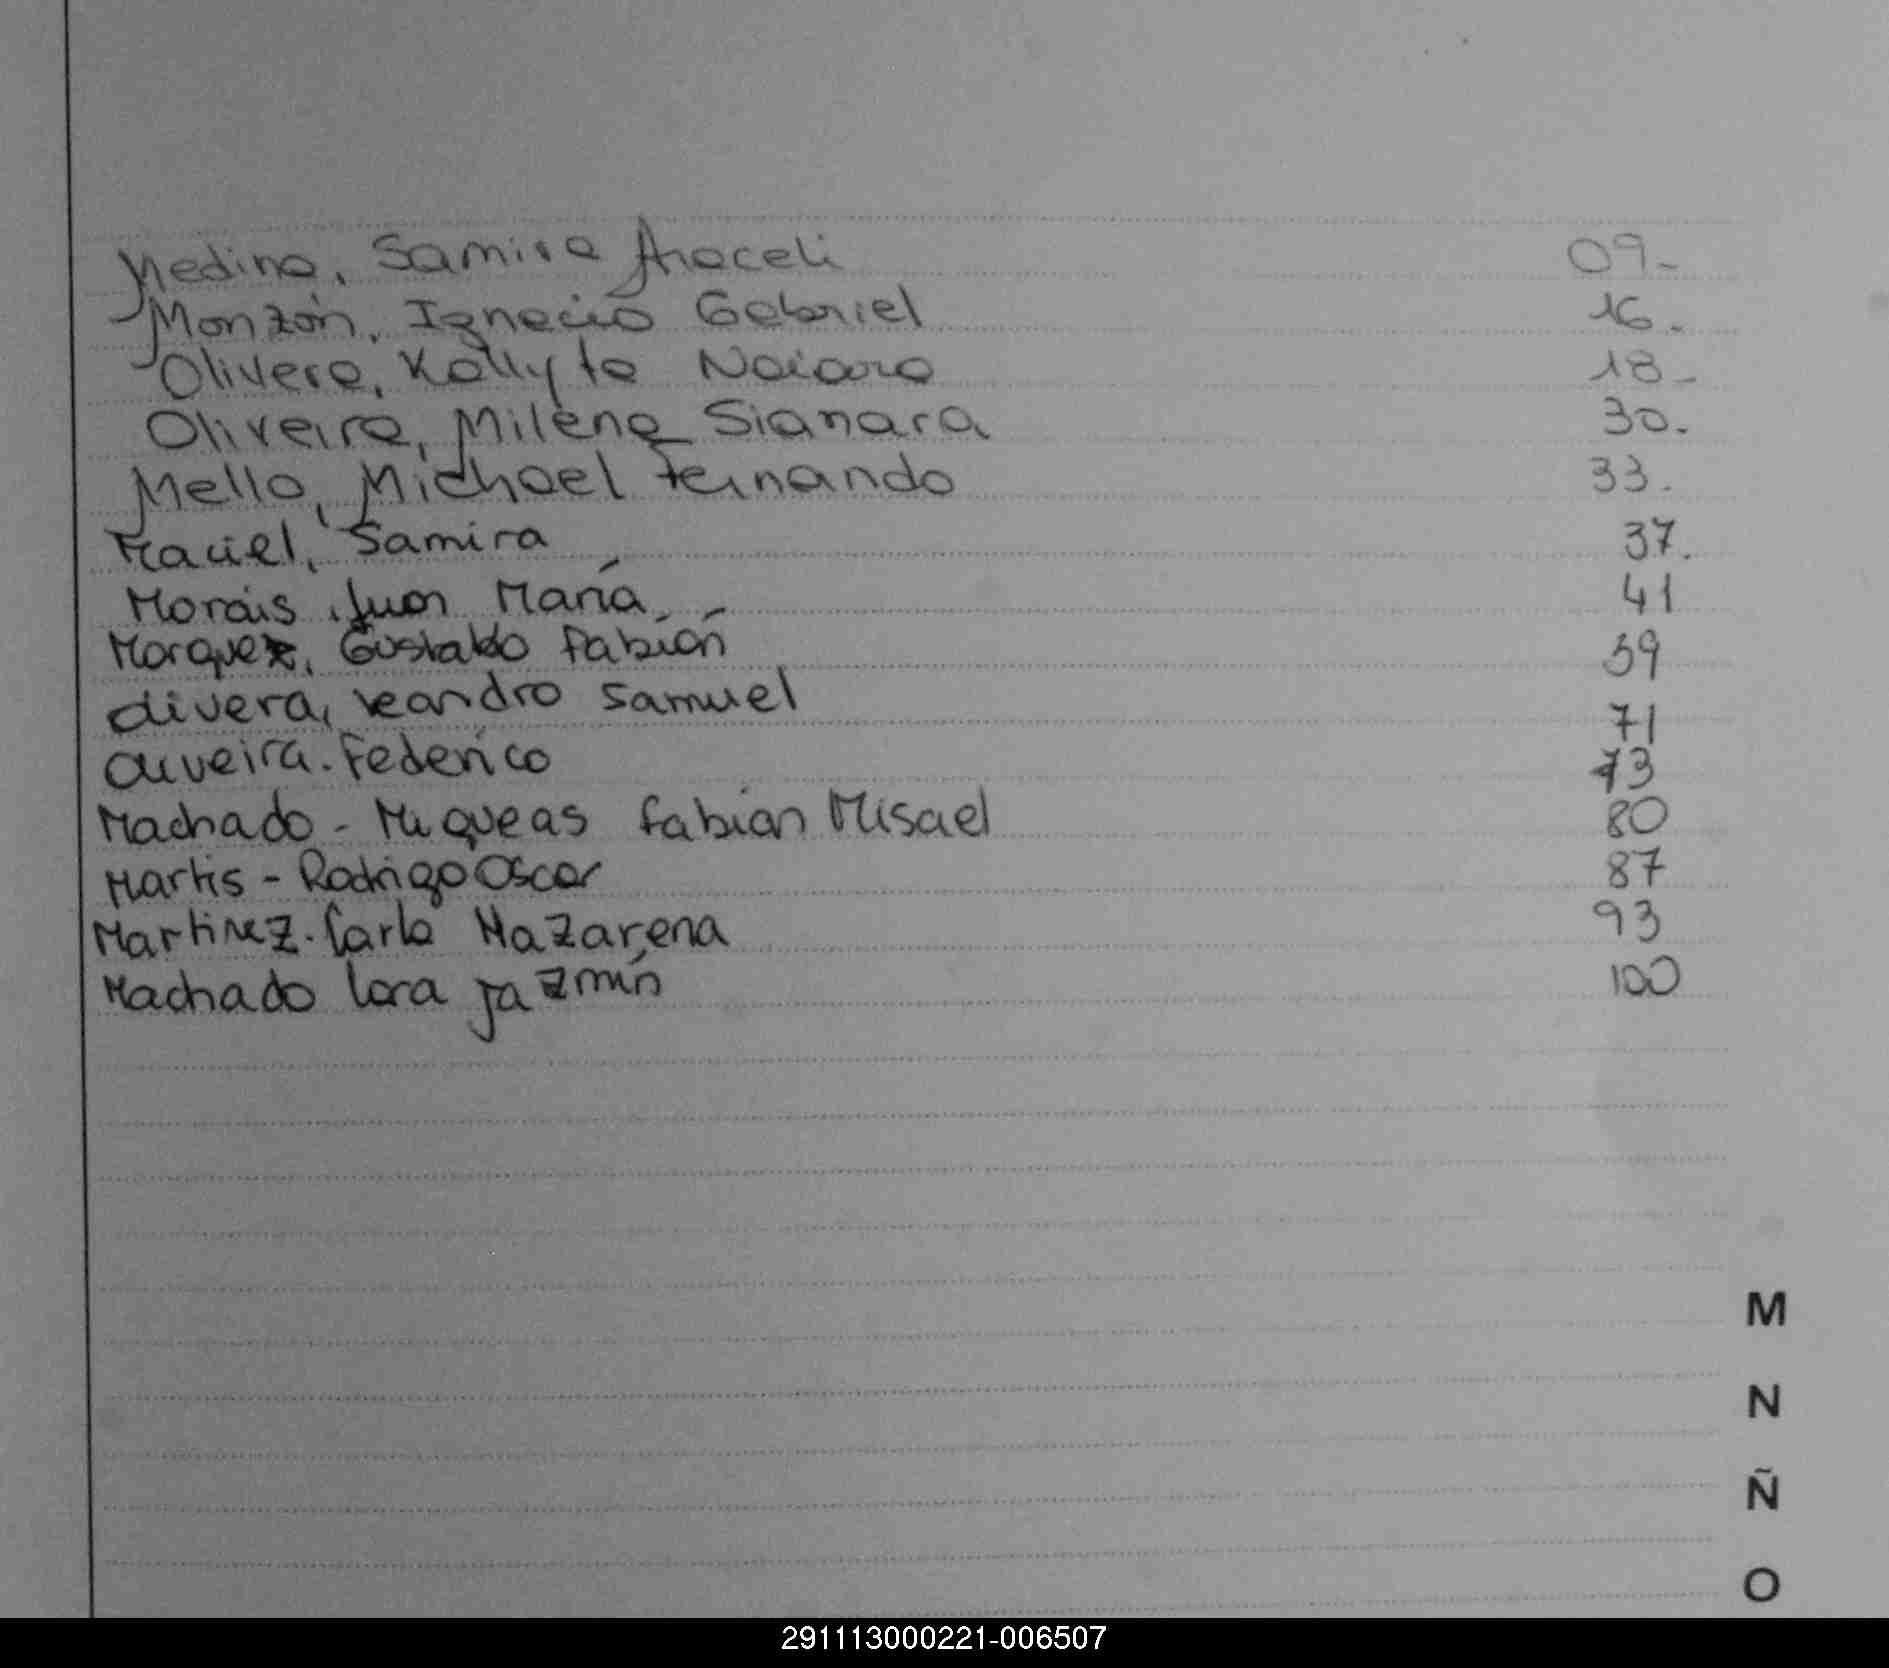 Medina, Samira Araceli 09-
Monzón, Ignacio Gabriel 16.
Olivera, Kallyta Naiara 18-
Oliveira, Milena Sianara 30.
Mello, Michael Fernando 33.
Maciel, Samira 37.
Morais, Juan María 41
Marquez, Gustabo Fabián 59
Olivera, Leandro Samuel 71
Oliveira. Federico 73
Machado - Miqueas Fabian Misael 80
Martis - Rodrigo Oscar 87
Martinez. Carla Nazarena 93
Machado Lara Jazmín 100
M
N
Ñ
O
291113000221-006507